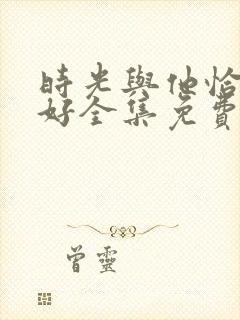 時光與他恰
好全集免費
曾靈